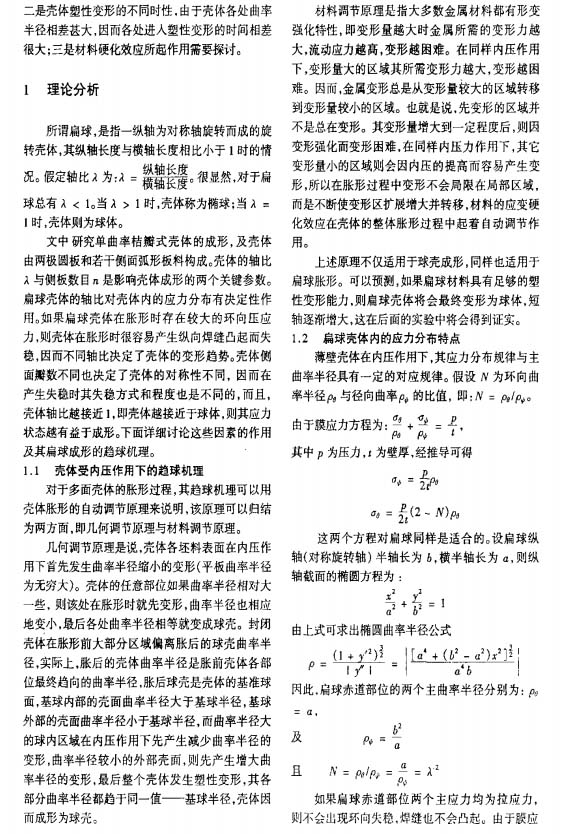 二是壳体塑性变形的不同时性,由于壳体各处曲率
半径相差甚大,因而各处进入塑性变形的时间相差
很大;三是材料硬化效应所起作用需要探讨。
1 理论分析
所谓扁球,是指一纵轴为对称轴旋转而成的旋
转壳体,其纵轴长度与横轴长度相比小于1时的情
况。假定轴比λ为:λ = 纵轴长度/横轴长度。很显然,对于扁
球总有 λ < 1。当 λ > 1 时,壳体称为椭球;当 λ =
1时,壳体则为球体。
文中研究单曲率桔瓣式壳体的成形,及壳体
由两极圆板和若干侧面弧形板料构成。壳体的轴比
λ与侧板数目 n 是影响壳体成形的两个关键参数。
扁球壳体的轴比对壳体内的应力分布有决定性作
用。如果扁球壳体在胀形时存在较大的环向压应
力,则壳体在胀形时很容易产生纵向焊缝凸起而失
稳,因而不同轴比决定了壳体的变形趋势。壳体侧
面瓣数不同也决定了壳体的对称性不同,因而在
产生失稳时其失稳方式和程度也是不同的,而且,
壳体轴比越接近1,即壳体越接近于球体,则其应力
状态越有益于成形。下面详细讨论这些因素的作用
及其扁球成形的趋球机理。
1.1 壳体受内压作用下的趋球机理
对于多面壳体的胀形过程,其趋球机理可以用
壳体胀形的自动调节原理来说明,该原理可以归结
为两方面,即几何调节原理与材料调节原理。
几何调节原理是说,壳体各坯料表面在内压作
用下首先发生曲率半径缩小的变形(平板曲率半径
为无穷大)。壳体的任意部位如果曲率半径相对大
一些,则该处在胀形时就先变形,曲率半径也相应
地变小,最后各处曲率半径相等就变成球壳。封闭
壳体在胀形前大部分区域偏离胀后的球壳曲率半
径,实际上,胀后的壳体曲率半径是胀前壳体各部
位最终趋向的曲率半径,胀后球壳是壳体的基准球
面,基球内部的壳面曲率半径大于基球半径,基球
外部的壳面曲率半径小于基球半径,而曲率半径大
的球内区域在内压作用下先产生减少曲率半径的
变形,曲率半径较小的外部壳面,则先产生增大曲
率半径的变形,最后整个壳体发生塑性变形,其各
部分曲率半径都趋于同一值——基球半径,壳体因
而成形为球壳。
材料调节原理是指大多数金属材料都有形变
强化特性,即变形量越大时金属所需的变形力越
大,流动应力越高,变形越困难。在同样内压作用
下,变形量大的区域其所需变形力越大,变形越困
难。因而,金属变形总是从变形量较大的区域转移
到变形量较小的区域。也就是说,先变形的区域并
不是总在变形。其变形量增大到一定程度后,则因
变形强化而变形困难,在同样内压力作用下,其它
变形量小的区域则会因内压的提高而容易产生变
形,所以在胀形过程中变形不会局限在局部区域,
而是不断使变形区扩展增大并转移,材料的应变硬
化效应在壳体的整体胀形过程中起着自动调节作
用。
上述原理不仅适用于球壳成形,同样也适用于
扁球胀形。可以预测,如果扁球材料具有足够的塑
性变形能力,则扁球壳体将会最终变形为球体,短
轴逐渐增大,这在后面的实验中将会得到证实。
1.2 扁球壳体内的应力分布特点
薄壁壳体在内压作用下,其应力分布规律与主
曲率半径具有一定的对应规律。假设 N 为环向曲
率半径ρθ与径向曲率ρφ的比值,即:N = ρθ/ρφ。
由于膜应力方程为:σθ/ρθ + σφ/ρφ = p/t,
其中 p 为压力,t 为壁厚,经推导可得
σφ = p/2t ρθ
σθ = p/2t (2 - N)ρθ
这两个方程对扁球同样是适合的。设扁球纵
轴(对称旋转轴)半轴长为 b,横半轴长为 a,则纵
轴截面的椭圆方程为:
x²/a² + y²/b² = 1
由上式可求出椭圆曲率半径公式
ρ = (1 + y′²)^(3/2) / |y″| = |[a⁴ + (b² - a²)x²]^(3/2) / a⁴b|
因此,扁球赤道部位的两个主曲率半径分别为:ρθ
= a,
及 ρφ = b²/a
且 N = ρθ/ρφ = a/ρφ = λ⁻²
如果扁球赤道部位两个主应力均为拉应力,
则不会出现环向失稳,焊缝也不会凸起。由于膜应